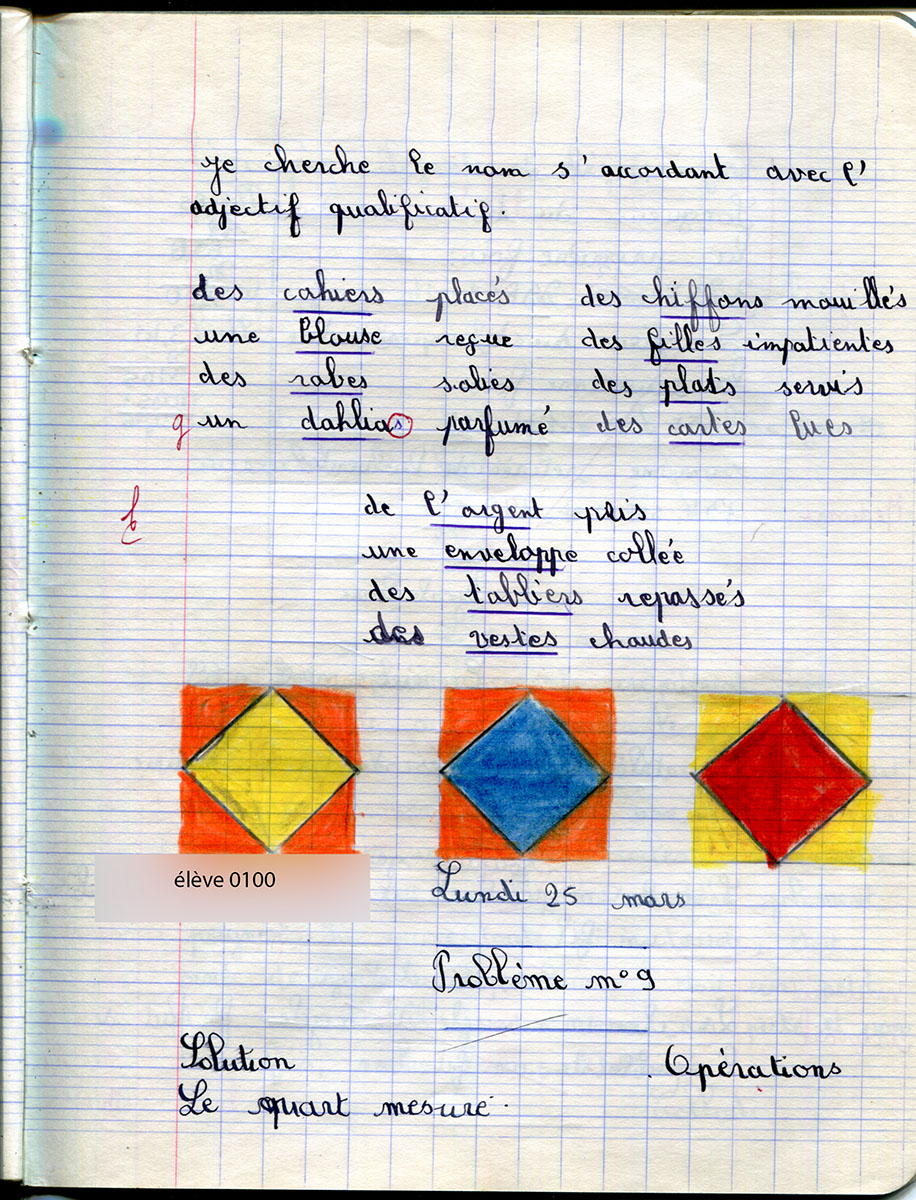 Je cherche le nom s'accordant avec l'
adjectif qualificatif.
des cahiers placés des chiffons mouillés
une blouse reçue des filles impatientes
des robes salies des plats servis
g un dahlias parfumé des cartes lues
de l'argent pris
une enveloppe collée
des tabliers repassés
des vestes chaudes
élève 0100
Lundi 25 mars
Problème n° 9
Solution Opérations
Le quart mesure